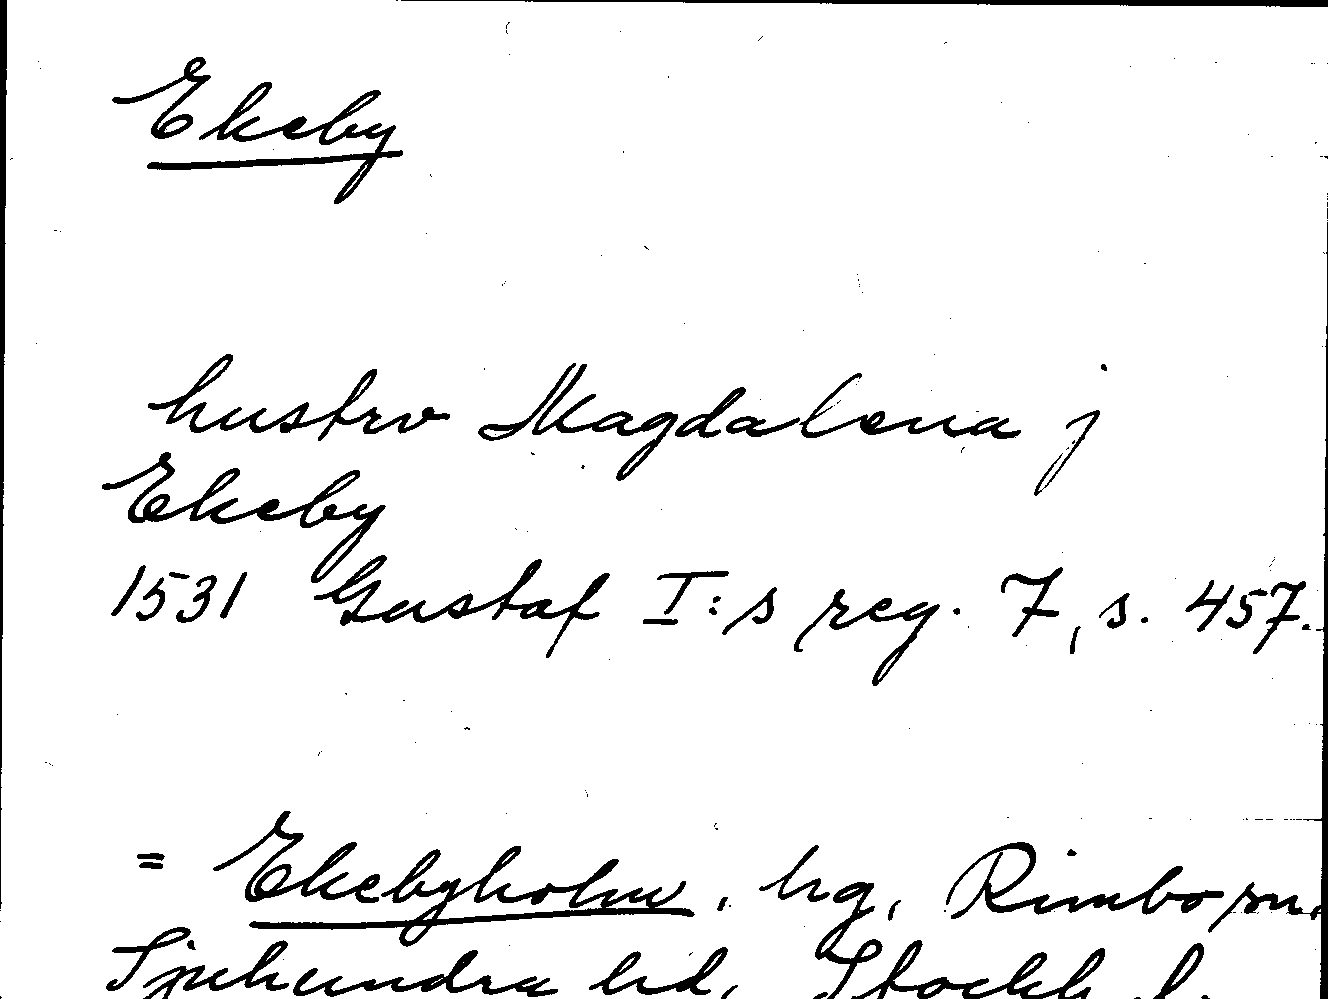 Ekeby
hustrv Magdalena j
Ekeby
1531 Gustaf I:s reg. 7, s. 457.
= Ekebyholm, hg, Rimbo sn,
Sjuhundra hd, Stockh. l.